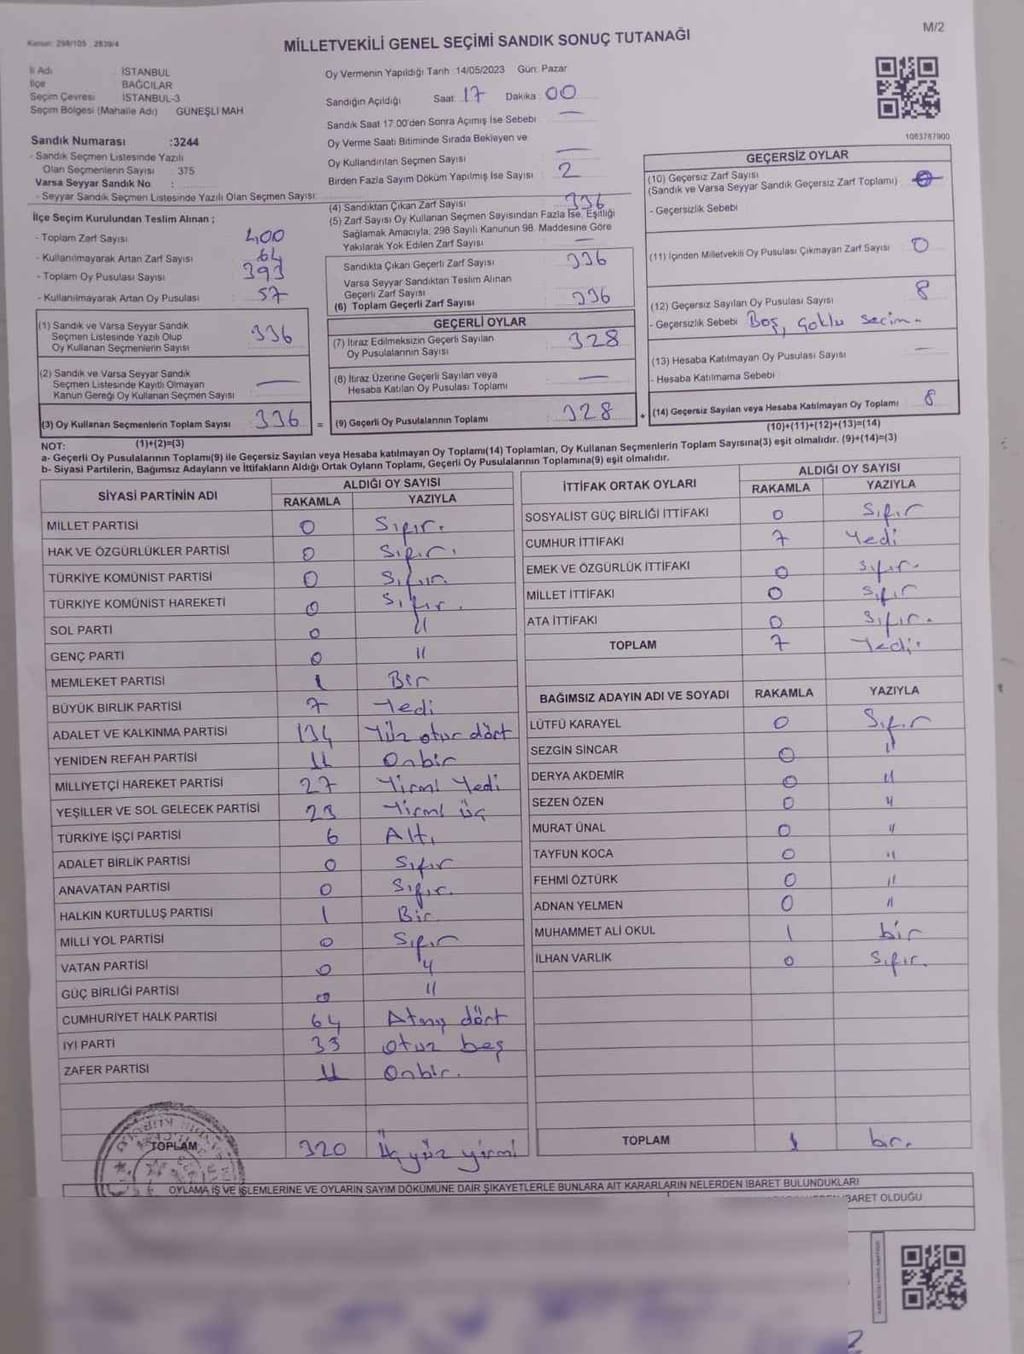 Kanun: 298/105 , 2839/4
M/2
MİLLETVEKİLİ GENEL SEÇİMİ SANDIK SONUÇ TUTANAĞI
İl Adı İSTANBUL
İlçe BAĞCILAR
Seçim Çevresi İSTANBUL-3
Seçim Bölgesi (Mahalle Adı) GÜNEŞLİ MAH
Sandık Numarası :3244
- Sandık Seçmen Listesinde Yazılı
Olan Seçmenlerin Sayısı 375
Varsa Seyyar Sandık No :
- Seyyar Sandık Seçmen Listesinde Yazılı Olan Seçmen Sayısı:
İlçe Seçim Kurulundan Teslim Alınan ;
- Toplam Zarf Sayısı 400
- Kullanılmayarak Artan Zarf Sayısı 64
- Toplam Oy Pusulası Sayısı 393
- Kullanılmayarak Artan Oy Pusulası 57
(1) Sandık ve Varsa Seyyar Sandık
Seçmen Listesinde Yazılı Olup
Oy Kullanan Seçmenlerin Sayısı 336
(2) Sandık ve Varsa Seyyar Sandık
Seçmen Listesinde Kayıtlı Olmayan
Kanun Gereği Oy Kullanan Seçmen Sayısı —
(3) Oy Kullanan Seçmenlerin Toplam Sayısı 336 =
(1)+(2)=(3)
Oy Vermenin Yapıldığı Tarih :14/05/2023 Gün: Pazar
Sandığın Açıldığı Saat: 17 Dakika: 00
Sandık Saat 17:00'den Sonra Açımış İse Sebebi —
Oy Verme Saati Bitiminde Sırada Bekleyen ve
Oy Kullandırılan Seçmen Sayısı —
Birden Fazla Sayım Döküm Yapılmış İse Sayısı 2
(4) Sandıktan Çıkan Zarf Sayısı 336
(5) Zarf Sayısı Oy Kullanan Seçmen Sayısından Fazla İse, Eşitliği
Sağlamak Amacıyla, 298 Sayılı Kanunun 98. Maddesine Göre
Yakılarak Yok Edilen Zarf Sayısı —
Sandıkta Çıkan Geçerli Zarf Sayısı 336
Varsa Seyyar Sandıktan Teslim Alınan
Geçerli Zarf Sayısı
(6) Toplam Geçerli Zarf Sayısı 336
GEÇERLİ OYLAR
(7) İtiraz Edilmeksizin Geçerli Sayılan
Oy Pusulalarının Sayısı 328
(8) İtiraz Üzerine Geçerli Sayılan veya
Hesaba Katılan Oy Pusulası Toplamı —
(9) Geçerli Oy Pusulalarının Toplamı 328 +
1083787900
GEÇERSİZ OYLAR
(10) Geçersiz Zarf Sayısı
(Sandık ve Varsa Seyyar Sandık Geçersiz Zarf Toplamı)
- Geçersizlik Sebebi
(11) İçinden Milletvekili Oy Pusulası Çıkmayan Zarf Sayısı 0
(12) Geçersiz Sayılan Oy Pusulası Sayısı 8
- Geçersizlik Sebebi Boş, Çoklu seçim.
(13) Hesaba Katılmayan Oy Pusulası Sayısı —
- Hesaba Katılmama Sebebi
(14) Geçersiz Sayılan veya Hesaba Katılmayan Oy Toplamı 8
(10)+(11)+(12)+(13)=(14)
NOT:
a- Geçerli Oy Pusulalarının Toplamı(9) ile Geçersiz Sayılan veya Hesaba katılmayan Oy Toplamı(14) Toplamları, Oy Kullanan Seçmenlerin Toplam Sayısına(3) eşit olmalıdır. (9)+(14)=(3)
b- Siyasi Partilerin, Bağımsız Adayların ve İttifakların Aldığı Ortak Oyların Toplamı, Geçerli Oy Pusulalarının Toplamına(9) eşit olmalıdır.
SİYASİ PARTİNİN ADI ALDIĞI OY SAYISI
RAKAMLA YAZIYLA
MİLLET PARTİSİ 0 Sıfır.
HAK VE ÖZGÜRLÜKLER PARTİSİ 0 Sıfır.
TÜRKİYE KOMÜNİST PARTİSİ 0 Sıfır.
TÜRKİYE KOMÜNİST HAREKETİ 0 Sıfır.
SOL PARTİ 0 "
GENÇ PARTİ 0 "
MEMLEKET PARTİSİ 1 Bir
BÜYÜK BİRLİK PARTİSİ 7 Yedi
ADALET VE KALKINMA PARTİSİ 134 Yüz otuz dört
YENİDEN REFAH PARTİSİ 11 Onbir
MİLLİYETÇİ HAREKET PARTİSİ 27 Yirmi Yedi
YEŞİLLER VE SOL GELECEK PARTİSİ 23 Yirmi üç
TÜRKİYE İŞÇİ PARTİSİ 6 Altı
ADALET BİRLİK PARTİSİ 0 Sıfır
ANAVATAN PARTİSİ 0 Sıfır.
HALKIN KURTULUŞ PARTİSİ 1 Bir
MİLLİ YOL PARTİSİ 0 Sıfır
VATAN PARTİSİ 0 "
GÜÇ BİRLİĞİ PARTİSİ 0 "
CUMHURİYET HALK PARTİSİ 64 Atmış dört
İYİ PARTİ 35 Otuz beş
ZAFER PARTİSİ 11 Onbir.
TOPLAM 320 Üçyüz yirmi
İTTİFAK ORTAK OYLARI ALDIĞI OY SAYISI
RAKAMLA YAZIYLA
SOSYALİST GÜÇ BİRLİĞİ İTTİFAKI 0 Sıfır
CUMHUR İTTİFAKI 7 Yedi
EMEK VE ÖZGÜRLÜK İTTİFAKI 0 Sıfır.
MİLLET İTTİFAKI 0 Sıfır
ATA İTTİFAKI 0 Sıfır.
TOPLAM 7 Yedi.
BAĞIMSIZ ADAYIN ADI VE SOYADI RAKAMLA YAZIYLA
LÜTFÜ KARAYEL 0 Sıfır
SEZGİN SİNCAR 0 "
DERYA AKDEMİR 0 "
SEZEN ÖZEN 0 "
MURAT ÜNAL 0 "
TAYFUN KOCA 0 "
FEHMİ ÖZTÜRK 0 "
ADNAN YELMEN 0 "
MUHAMMET ALİ OKUL 1 bir
İLHAN VARLIK 0 Sıfır.
TOPLAM 1 bir.
OYLAMA İŞ VE İŞLEMLERİNE VE OYLARIN SAYIM DÖKÜMÜNE DAİR ŞİKAYETLERLE BUNLARA AİT KARARLARIN NELERDEN İBARET BULUNDUKLARI
İBARET OLDUĞU